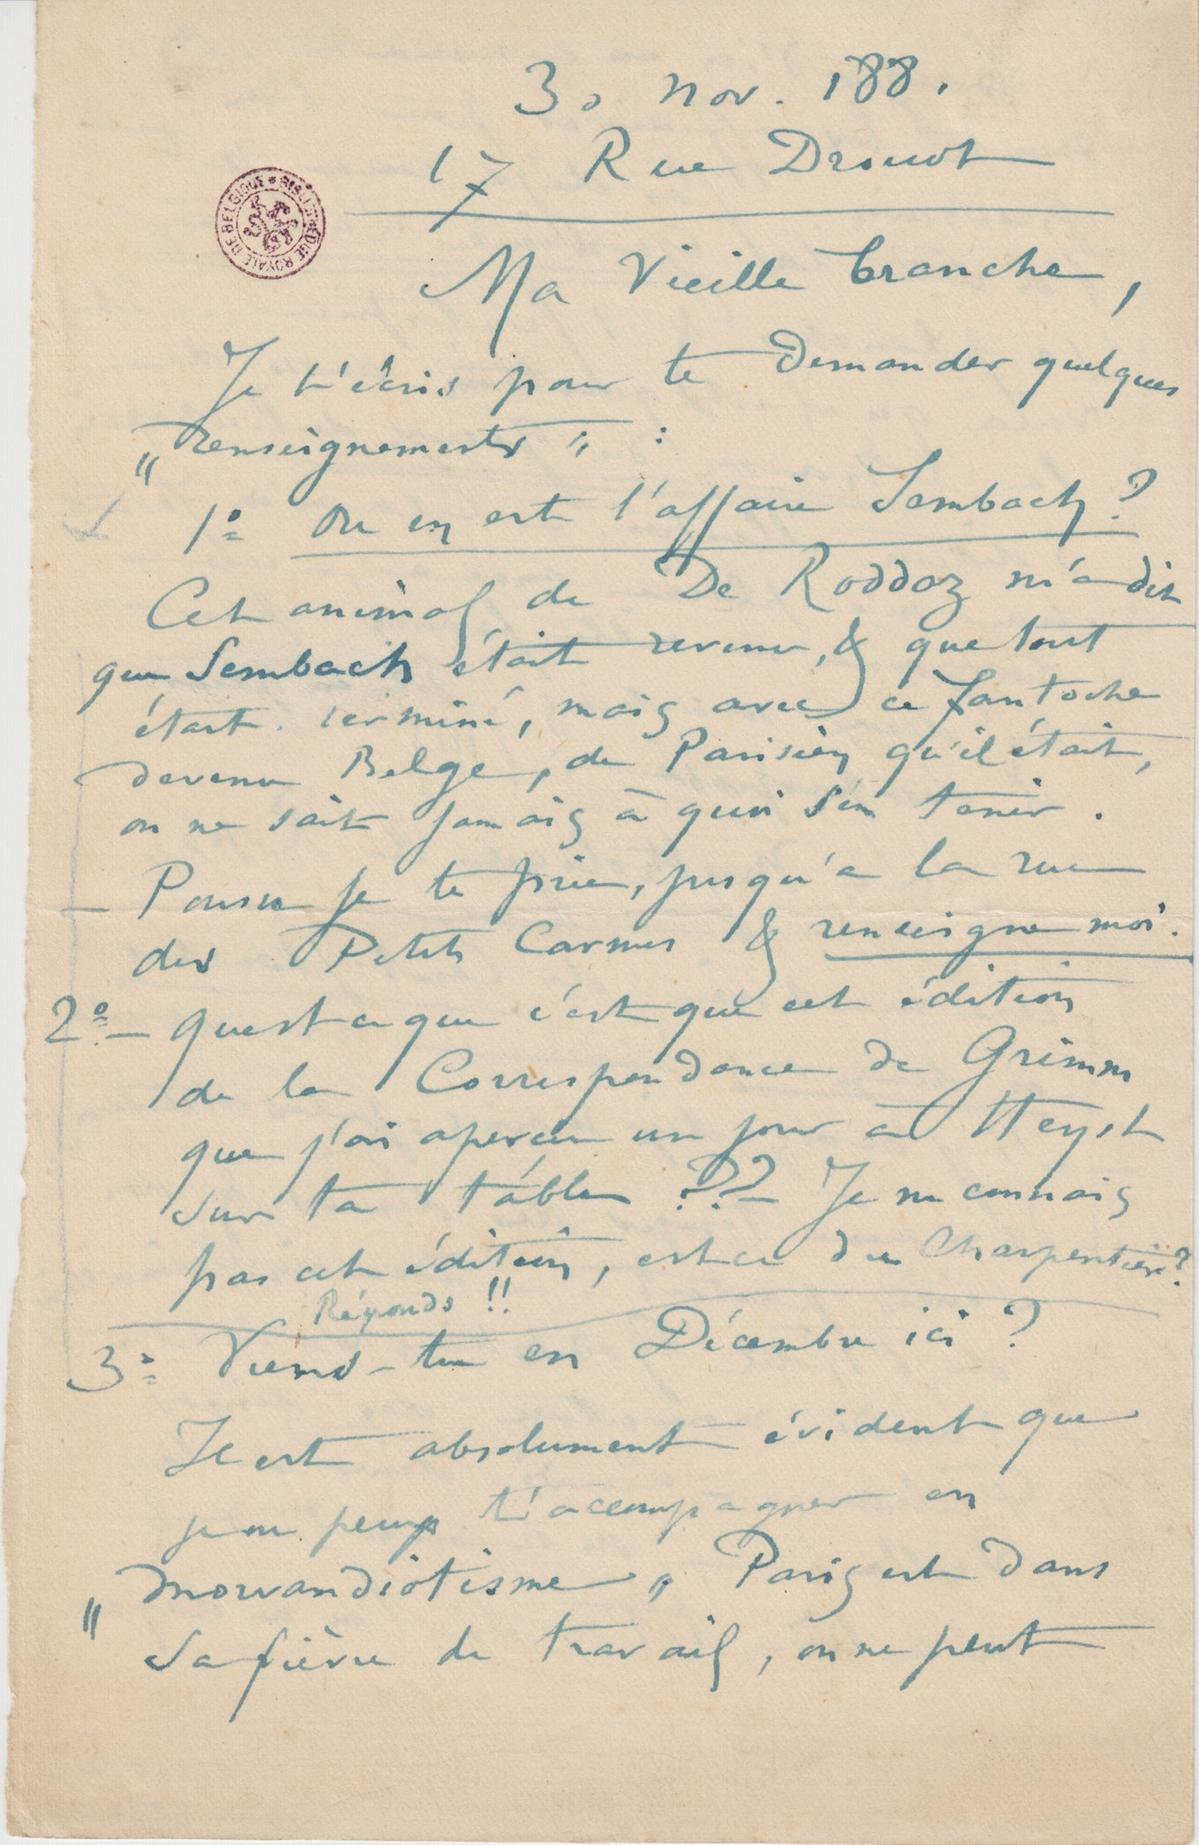 30 nov. 188.
17 Rue Drouot
BIBLIOTHÈQUE ROYALE DE BELGIQUE
Ma Vieille branche,
Je t'écris pour te demander quelques
"renseignements" :
1º Où en est l'affaire Sembach ?
Cet animal de De Roddaz m'a dit
que Sembach était revenu, & que tout
était terminé, mais avec ce fantoche
devenu Belge, de Parisien qu'il était,
on ne sait jamais à quoi s'en tenir.
– Pousse je te prie, jusqu'à la rue
des Petits Carmes & renseigne moi.
2º – Qu'est ce que c'est que cet édition
de la Correspondance de Grimm
que j'ai aperçu un jour à Heyst
sur ta table ?? – Je ne connais
pas cet édition, est ce du Charpentier ?
Réponds !!
3º Viens-tu en Décembre ici ?
Il est absolument évident que
je ne peux t'accompagner en
"morvandiotisme" Paris est dans
sa fièvre de travail, on ne peut